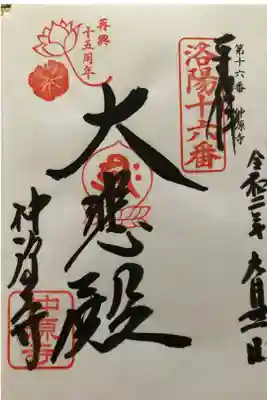 奉拝
第十六番 仲源寺
洛陽十六番
令和二年 六月 一日
大悲殿
再興
十五周年
仲源寺
仲源寺